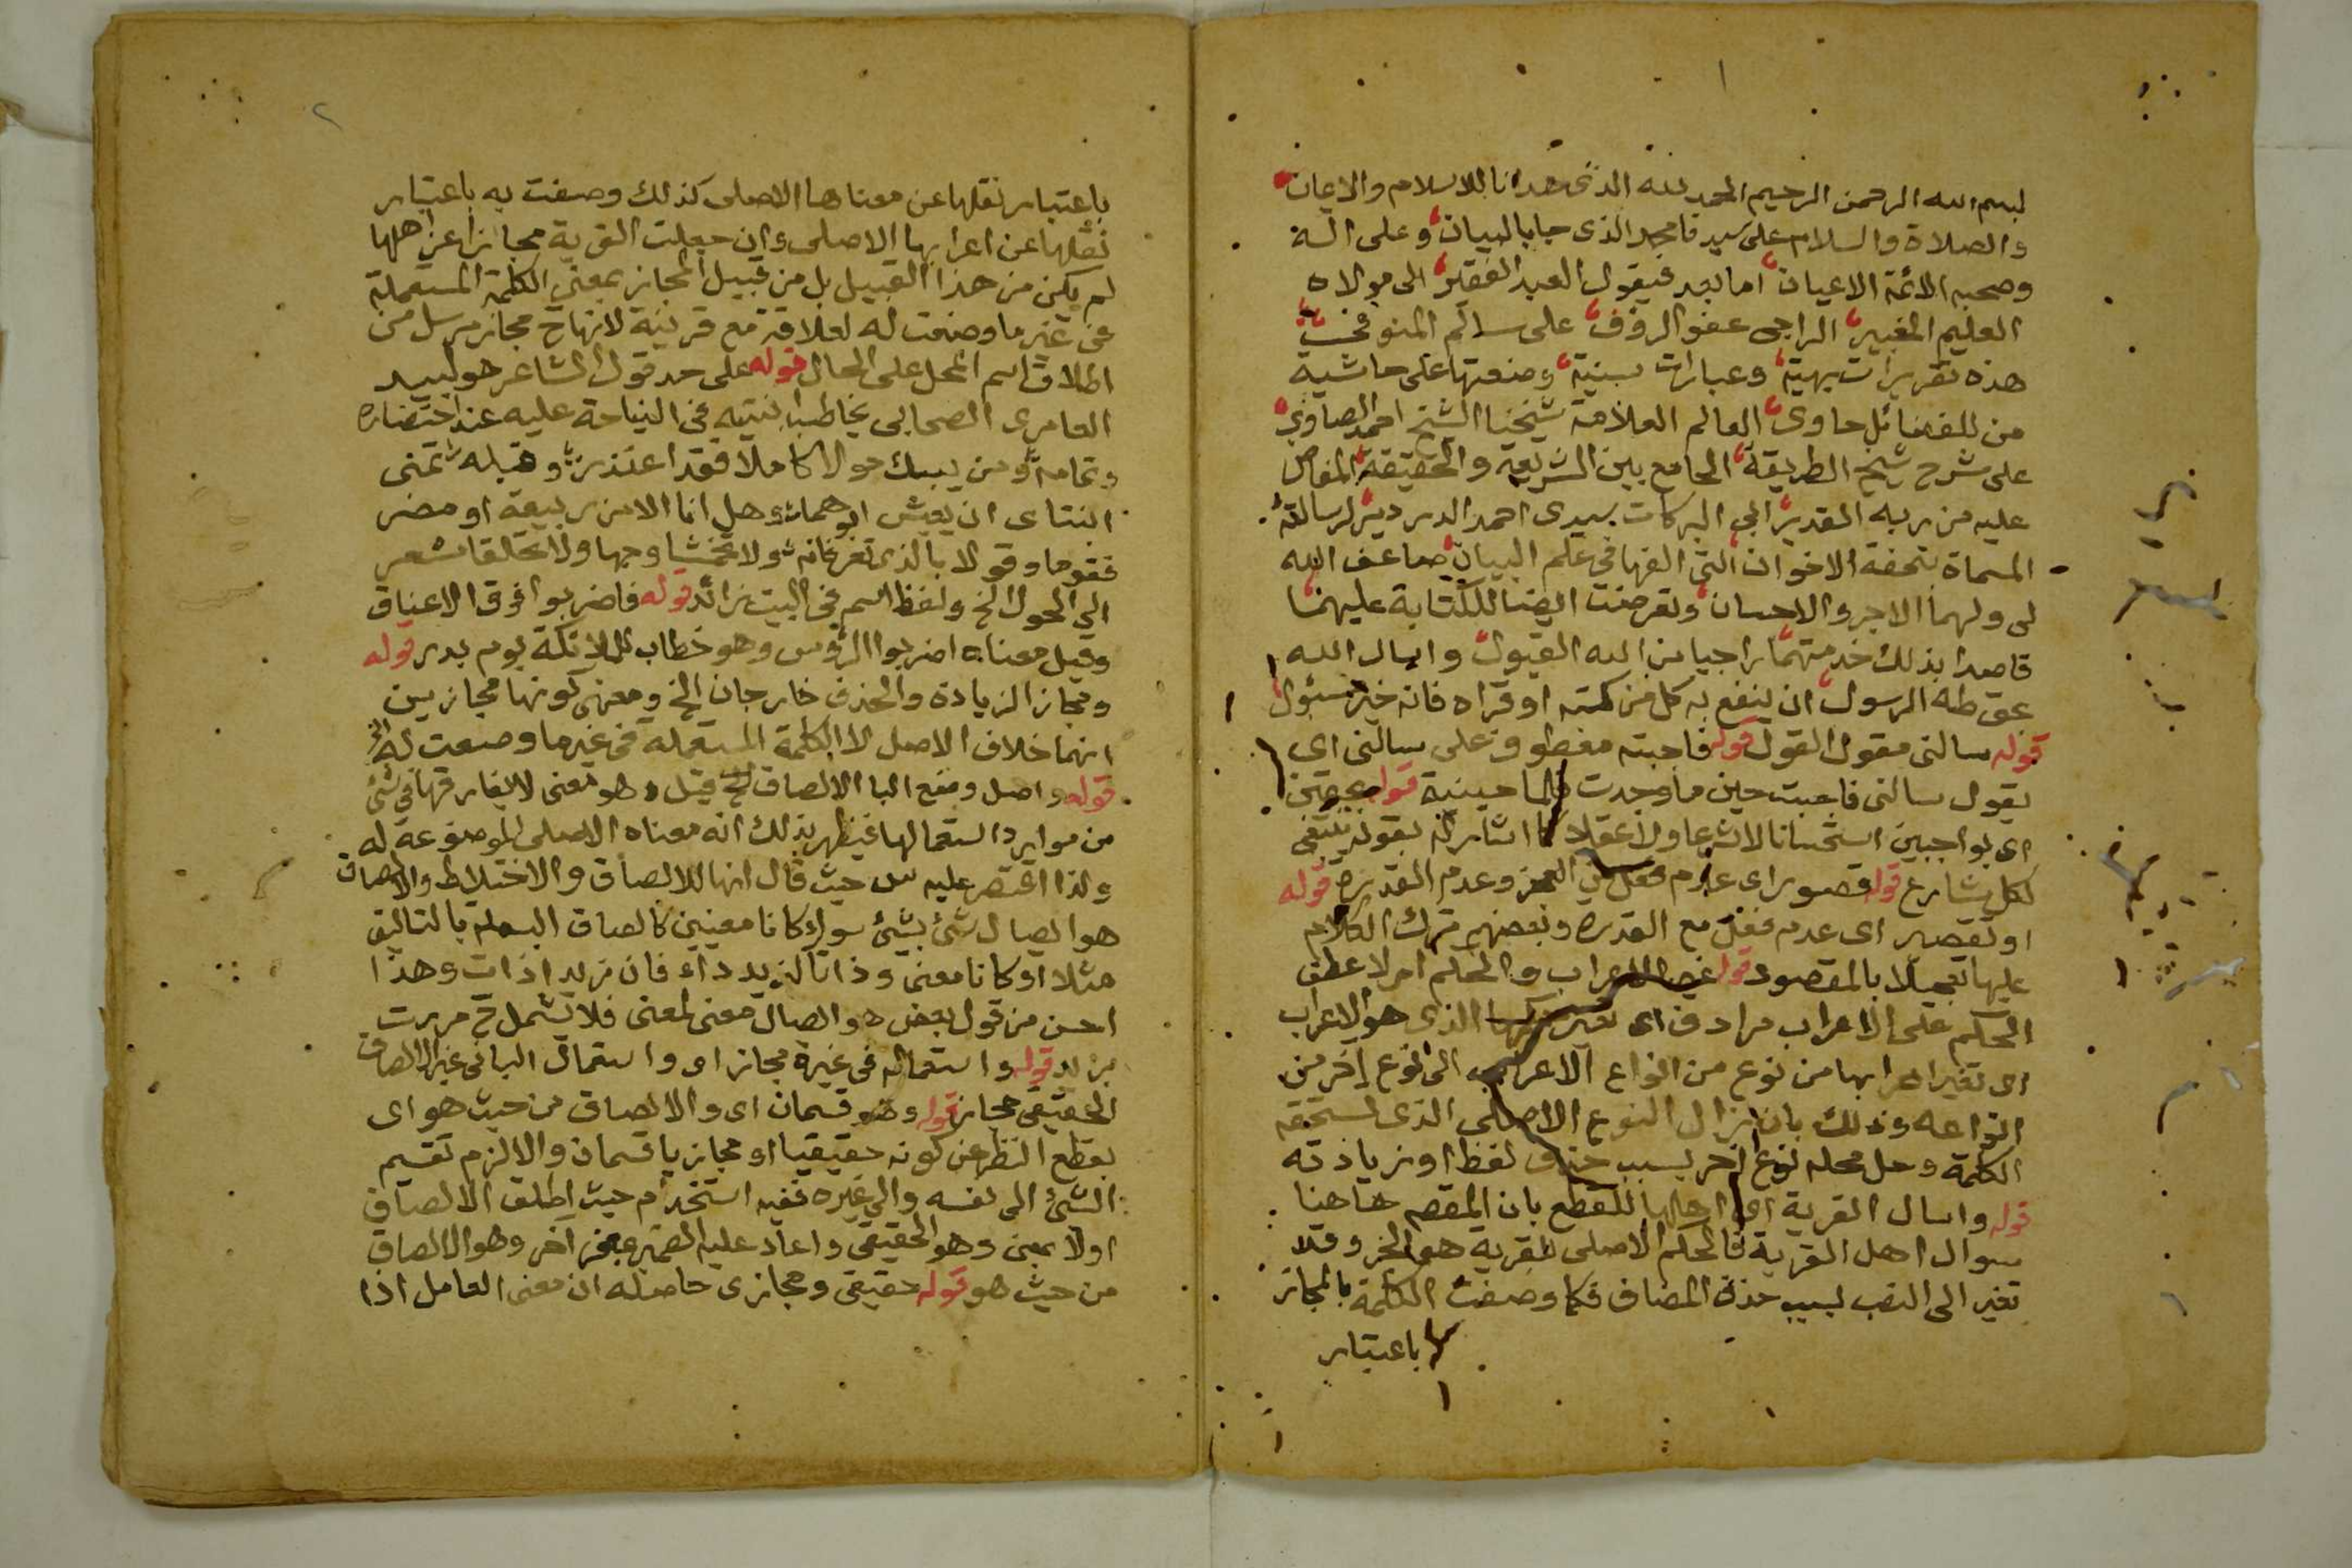 ١
بسم الله الرحمن الرحيم الحمد لله الذى هدانا للاسلام والايمان
والصلاة والسلام على سيدنا محمد الذى جا بالبيان وعلى اله
وصحبه الائمة الاعيان اما بعد فيقول العبد الفقير الى مولاه
العليم الخبير الراجى عفو الرؤف على سالم المنوفى
هذه تقريرات بهية وعبارات سنية وضعتها على حاشية
من للفضائل حاوى العالم العلامة شيخنا الشيخ احمد الصاوى
على شرح شيخ الطريقة الجامع بين الشريعة والحقيقة المفاض
عليه من ربه القدير ابي البركات سيدى احمد الدردير لرسالته
المسماة بتحفة الاخوان التى الفها فى علم البيان ضاعف الله
لى ولهما الاجر والاحسان وتعرضت ايضا للكتابة عليهما
قاصدا بذلك خدمتهما راجيا من الله القبول واسال الله
بحق طه الرسول ان ينفع به كل من كتبه او قراه فانه خير مسئول
قوله سالنى مقول القول قوله فاجبته معطوف على سالنى اى
يقول سالنى فاجبت حين ما وجدت قوله
اى بواجبين استحسانا لا شرعا ولا عقلا كما اشار له بقوله ينبغى
لكل شارع قوله قصور اى عدم فعل العجز وعدم القدره قوله
او تقصير اى عدم فعل مع القدره وبعضهم ترك الكلام
عليها تعجيلا بالمقصود قوله الاعراب والحكم اولا عطف
الحكم على الاعراب مرادف اى تغير الذى هو الاعراب
اى تغير اعرابها من نوع من انواع الاعراب الى نوع اخر من
انواعه وذلك بان زال النوع الاصلى الذى تستحقه
الكلمة وحل محله نوع اخر بسبب حذف لفظ او زيادته
قوله واسال القرية اى اهلها للقطع بان المقصود هاهنا
سوال اهل القرية فالحكم الاصلى للقرية هو الجر وقد
تغير الى النصب بسبب حذف المضاف فكما وصفت الكلمة بالمجاز
باعتبار
٢
باعتبار نقلها عن معناها الاصلى كذلك وصفت به باعتبار
نقلها عن اعرابها الاصلى وان جعلت القرية مجازا عن اهلها
لم يكن من هذا القبيل بل من قبيل المجاز بمعنى الكلمة المستعملة
فى غير ما وضعت له لعلاقة مع قرينة لانها ح مجاز مرسل من
اطلاق اسم المحل على الحال قوله على حد قول الشاعر هو لبيد
العامرى الصحابى يخاطب ابنتيه فى النياحة عليه عند احتضاره
وتمامه ومن يبك حولا كاملا فقد اعتذر وقبله تمنى
ابنتاى ان يعيش ابوهما وهل انا الا من ربيعة او مضر
فقوما وقولا بالذى تعرفانه ولا تخمشا وجها ولا تحلقا شعر
الى الحول الخ ولفظ اسم فى البيت زائد قوله فاضربوا فوق الاعناق
وقيل معناه اضربوا الرؤس وهو خطاب للملائكة يوم بدر قوله
ومجاز الزيادة والحذف خارجان الخ ومعنى كونها مجازين
انهما خلاف الاصل لا الكلمة المستعملة فى غير ما وضعت له الخ
قوله واصل وضع البا الالصاق الخ قيل وهو معنى لا يفارقها فى شئ
من موارد استعمالها فيظهر بذلك انه معناه الاصلى الموضوعة له
ولذا اقتصر عليه س حيث قال انها للالصاق والاختلاط والالصاق
هو ايصال شئ بشئ سواء كانا معنيين كالصاق البسملة بالتاليف
مثلا او كانا معنى وذاتا لزيد داء فان زيدا ذات وهذا
احسن من قول بعض هو ايصال معنى لمعنى فلا تشمل ح مررت
بزيد قوله واستعماله فى غيره مجاز اى واستعمال البا فى غير الالصاق
الحقيقى مجاز قوله وهو قسمان اى والالصاق من حيث هو اى
بقطع النظر عن كونه حقيقيا او مجازيا قسمان والا لزم تقسيم
الشئ الى نفسه والى غيره ففيه استخدام حيث اطلق الالصاق
اولا بمعنى وهو الحقيقى واعاد عليه الضمير بمعنى آخر وهو الالصاق
من حيث هو قوله حقيقى ومجازى حاصله ان معنى العامل اذا